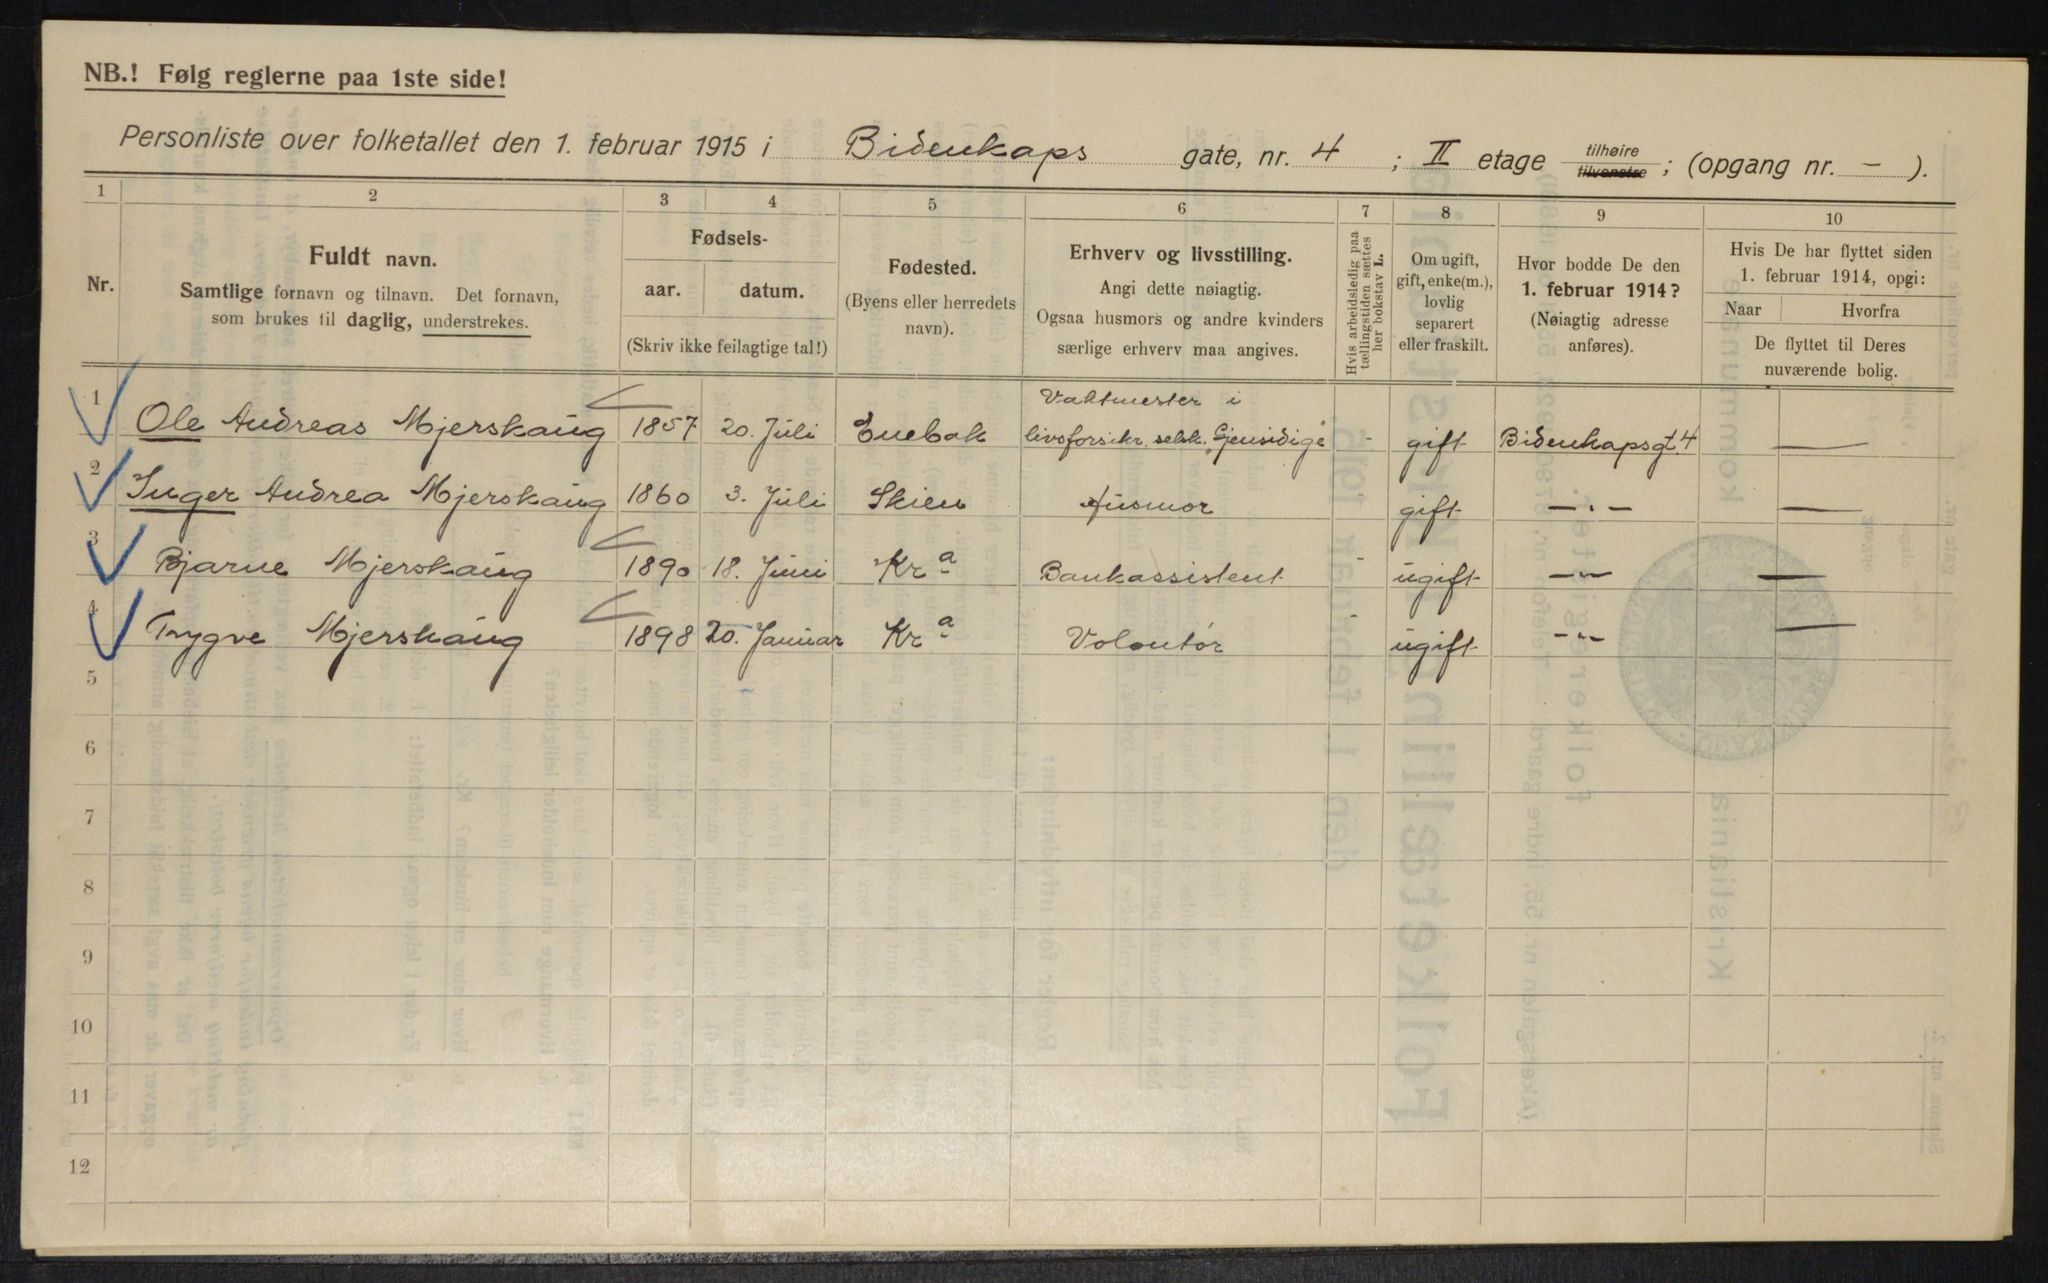 NB.! Følg reglerne paa 1ste side!
Personliste over folketallet den 1. februar 1915 i Bidenkaps gate, nr. 4 ; II etage tilhøire tilvenstre ; (opgang nr. – ).
1 2 3 4 5 6 7 8 9 10
Nr.
Fuldt navn.
Samtlige fornavn og tilnavn. Det fornavn,
som brukes til daglig, understrekes.
Fødsels-
aar. datum.
(Skriv ikke feilagtige tal!)
Fødested.
(Byens eller herredets
navn).
Erhverv og livsstilling.
Angi dette nøiagtig.
Ogsaa husmors og andre kvinders
særlige erhverv maa angives.
Hvis arbeidsledig paa
tællingstiden sættes
her bokstav L.
Om ugift,
gift, enke(m.),
lovlig
separert
eller fraskilt.
Hvor bodde De den
1. februar 1914?
(Nøiagtig adresse
anføres).
Hvis De har flyttet siden
1. februar 1914, opgi:
Naar Hvorfra
De flyttet til Deres
nuværende bolig.
1 Ole Andreas Mjerskaug 1857 20. Juli Enebak Vaktmester i
livsforsikr. selsk. „Gjensidige" - gift Bidenkapsgt. 4 —
2 Inger Andrea Mjerskaug 1860 3. Juli Skien Husmor gift — „ — —
3 Bjarne Mjerskaug 1890 18. Juni Kra Bankassistent - ugift — „ — —
4 Trygve Mjerskaug 1898 20. Januar Kra Volontør - ugift — „ — —
5
6
7
8
9
10
11
12